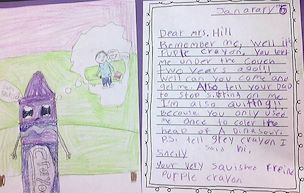 Janarary 5
Dear Mrs. Hill
Remember me, Well it's
Purple Crayon, You left
me under the couch
two years agoll
Well can you come and
get me. Also tell your Dad
to stop sitting on me
I'm also quitting!!
because you only used
me once to color the
head of A Dinasour!
P.S. tell grey crayon I
said hi,
Your very squished Friend
Purple crayon